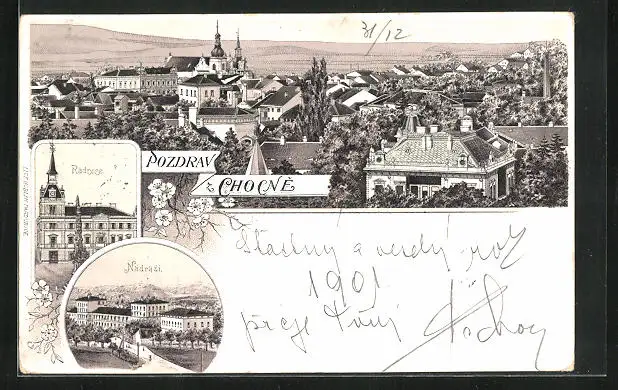 31/12
POZDRAV
z CHOCNĚ
Radnice
Nádraží.
Šťastný a veselý rok
1901
přeje Tony